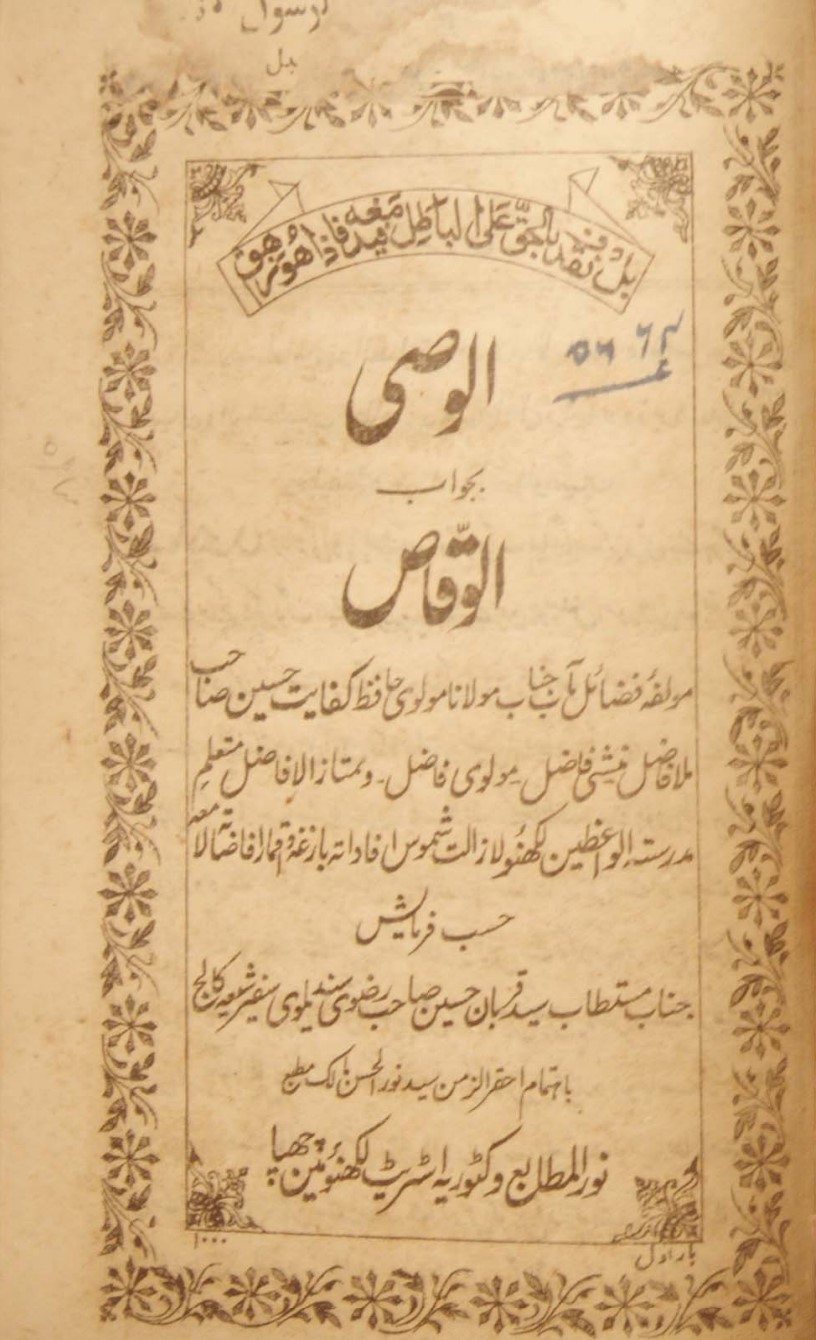 بل نقذف بالحق علی الباطل فیدمغه فاذا هو زهق
۵۶ ۶۲
الوصی
بجواب
الوقّاص
مولفۂ فضائل مآب جناب مولانا مولوی حافظ کفایت حسین صاحب
ملا فاضل منشی فاضل ۔ مولوی فاضل ۔ و ممتاز الافاضل متعلم
مدرستہ الواعظین لکھنؤ لازالت شموس افاداتہ بازغة و اقمار افاضاتہ لامعہ
حسب فرمایش
جناب مستطاب سید قربان حسین صاحب رضوی سندیلوی سفیر شیعہ کالج
باہتمام احقر الزمن سید نور الحسن مالک مطبع
نور المطابع وکٹوریہ اسٹریٹ لکھنؤ مین چھپا
بار اول
۱۰۰۰